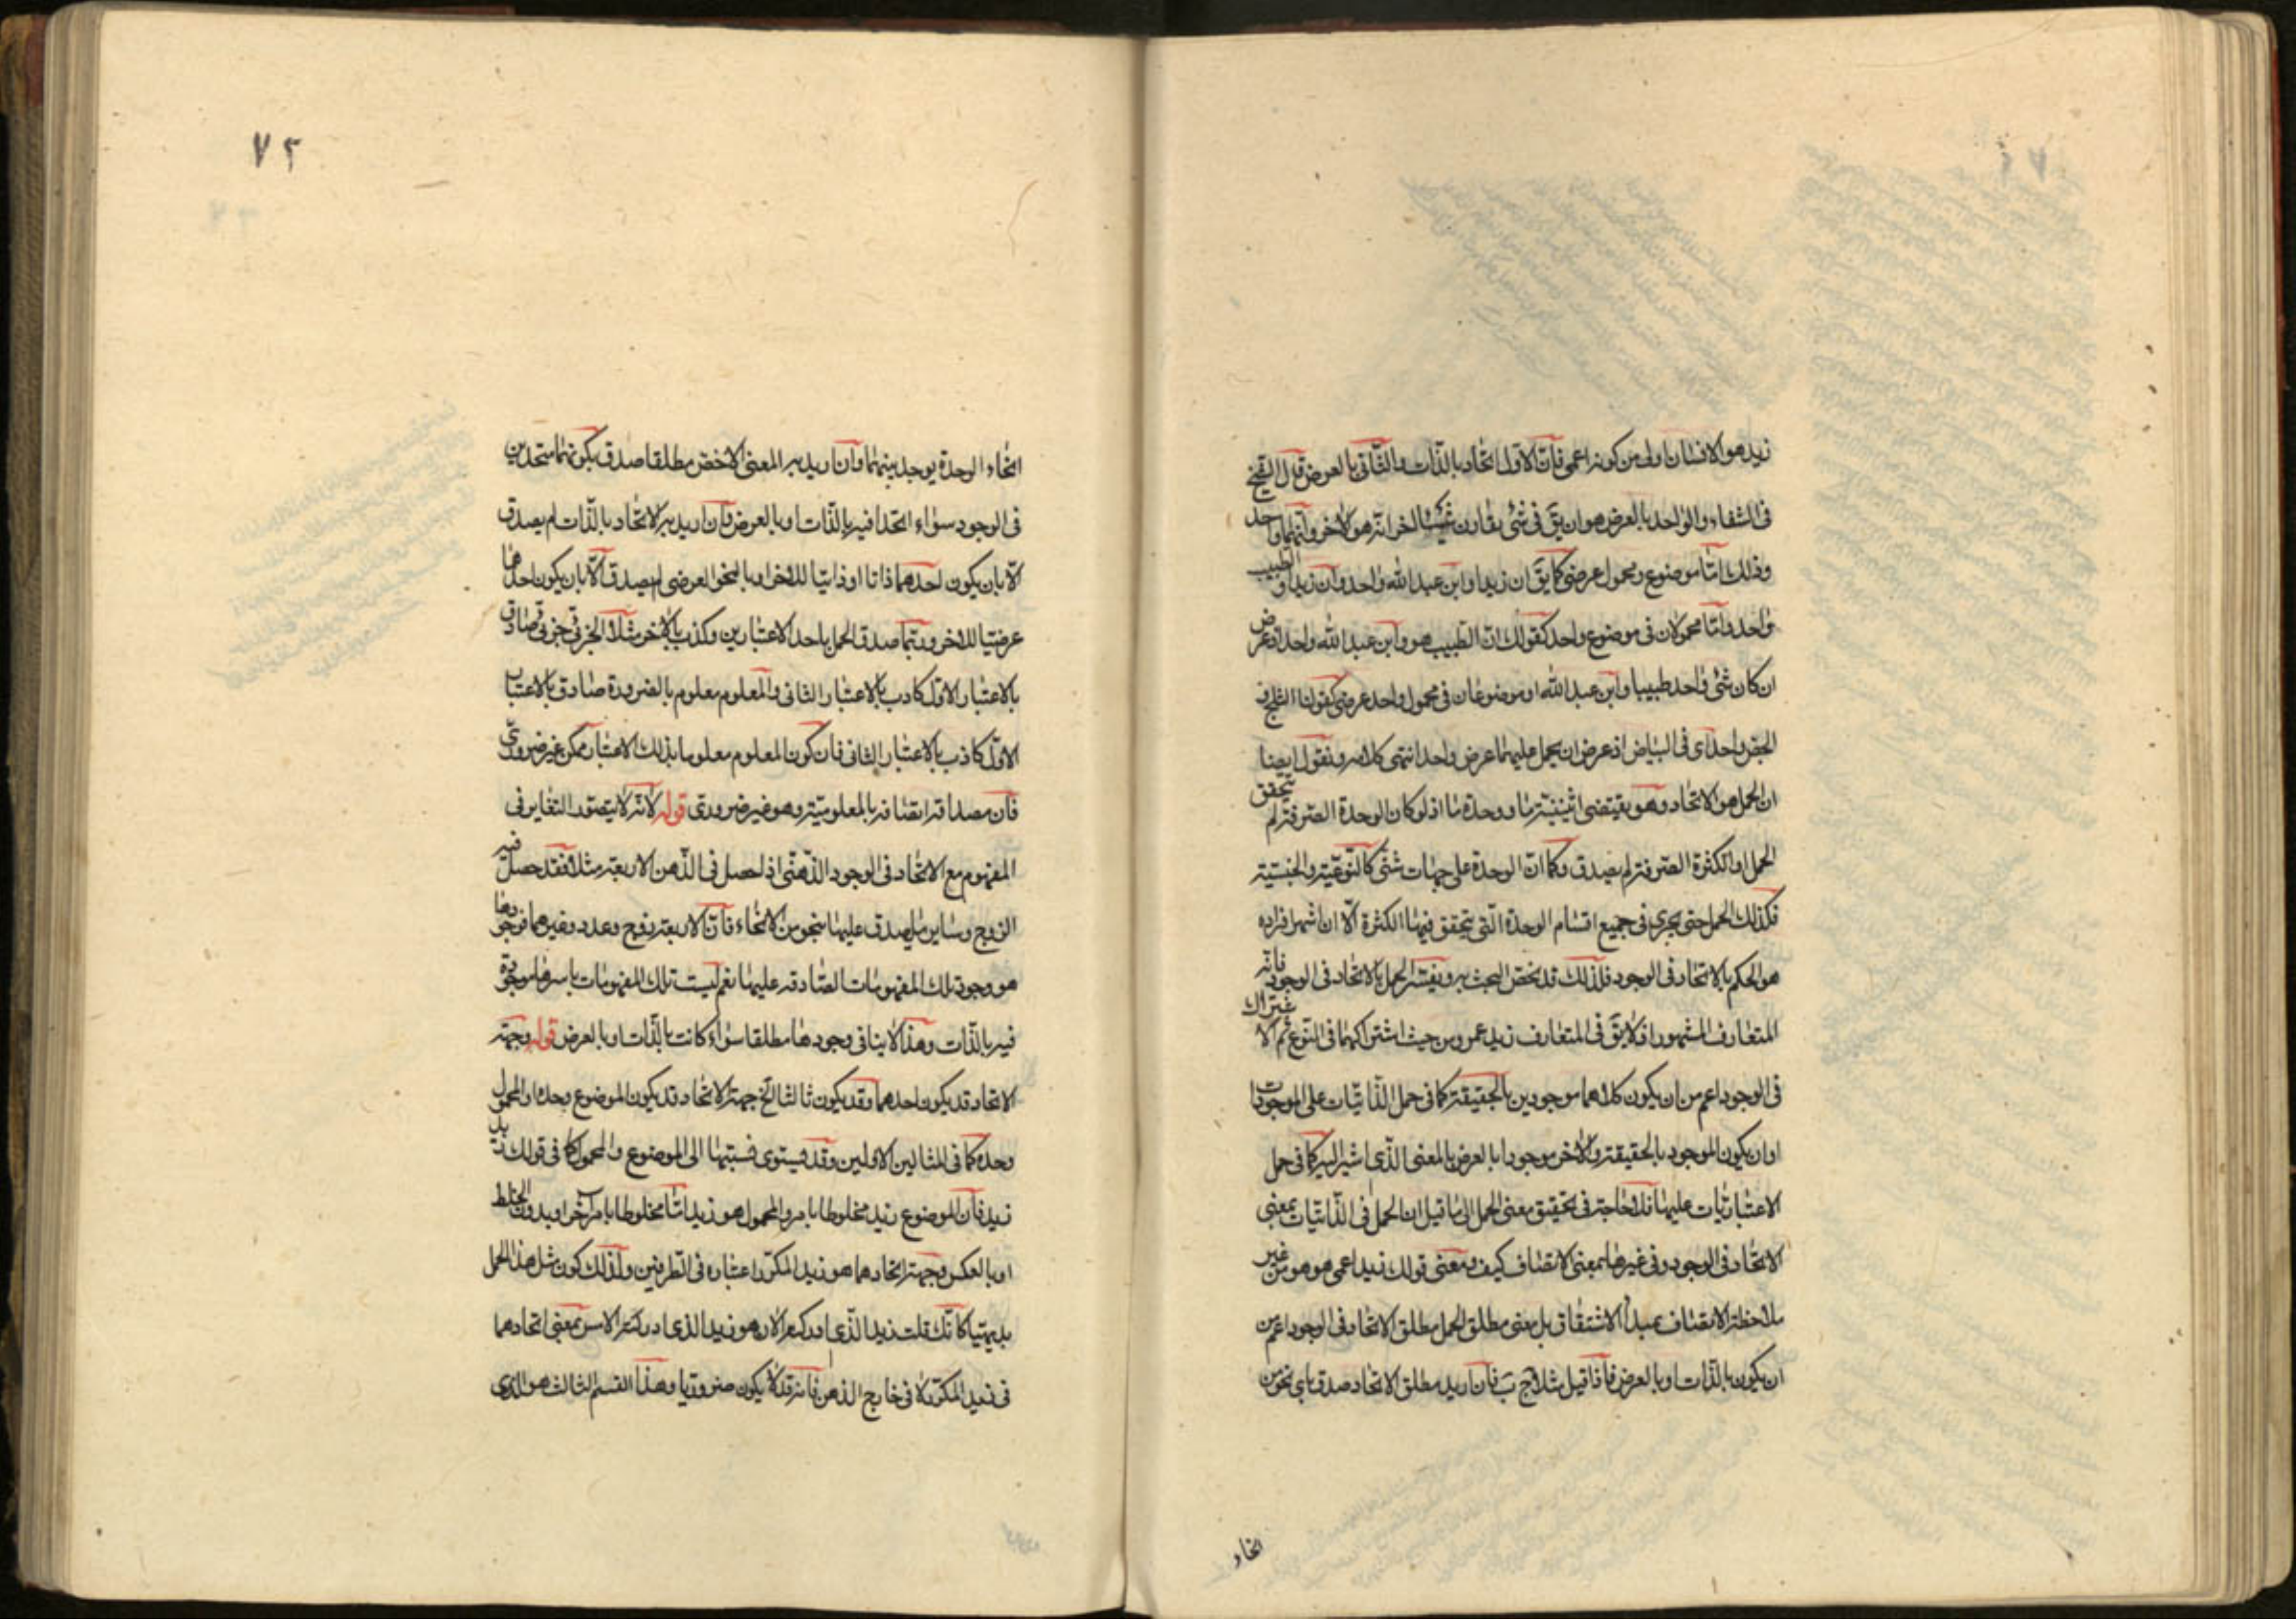 زيد هو الانسان اولى من كونه اعمى فان الاول اتحاد بالذات والثانى بالعرض قال الشيخ
فى الشفاء والواحد بالعرض هو ان يق فى شئ يقارن شيئا اخر انه هو الاخر وانهما واحد
وذلك اما موضوع ومحمول عرضى كما يق ان زيدا وابن عبد الله واحد وان زيدا والطبيب
واحد واما محمولان فى موضوع واحد كقولك ان الطبيب هو وابن عبد الله واحد اذ عرض
ان كان شئ واحد طبيبا وابن عبد الله او موضوعان فى محمول واحد عرضى كقولنا الثلج و
الجص واحد اى فى البياض اذ عرض ان يحمل عليهما عرض واحد انتهى كلامه ونقول ايضا
ان الحمل هو الاتحاد وهو يقتضى اثنينية ما ووحدة ما اذ لو كان الوحدة الصرفة لم يتحقق
الحمل او الكثرة الصرفة لم يصدق وكما ان الوحدة على جهات شتى كالنوعية والجنسية
فكذلك الحمل حتى يجرى فى جميع اقسام الوحدة التى يتحقق فيها الكثرة الا ان اشهر افراده
هو الحكم بالاتحاد فى الوجود فلذلك قد يختص البحث به ويفسر الحمل بالاتحاد فى الوجود فانه
المتعارف المشهور اذ لا يق فى المتعارف زيد عمرو من حيث اشتراكهما فى النوع ثم الا
فى الوجود اعم من ان يكون كلاهما موجودين بالحقيقة كما فى حمل الذاتيات على الموجودات
او ان يكون الموجود بالحقيقة والاخر موجودا بالعرض بالمعنى الذى اشير اليه كما فى حمل
الاعتباريات عليها فلا حاجة فى تحقيق معنى الحمل الى ما قيل ان الحمل فى الذاتيات بمعنى
الاتحاد فى الوجود وفى غيرها بمعنى الاتصاف كيف ومعنى قولك زيد اعمى هو هو من غير
ملاحظة الاتصاف بمبدأ الاشتقاق بل معنى مطلق الحمل مطلق الاتحاد فى الوجود اعم من
ان يكون بالذات او بالعرض فاذا قيل مثلا ج ب فان اريد مطلق الاتحاد صدق باى نحو من
اتحاد
٧٢
اتحاد الوحدة يوجد بينهما وان اريد به المعنى الاخص مطلقا صدق بكونهما متحدين
فى الوجود سواء اتحدا فيه بالذات او بالعرض فان اريد به الاتحاد بالذات لم يصدق
الا بان يكون احدهما ذاتا او ذاتيا للاخر او بالنحو العرضى لم يصدق الا بان يكون احدهما
عرضيا للاخر وربما صدق الحمل باحد الاعتبارين وكذب بالاخر مثلا الجزئى جزئى صادق
بالاعتبار الاول كاذب بالاعتبار الثانى والمعلوم معلوم بالضرورة صادق بالاعتبار
الاول كاذب بالاعتبار الثانى فان كون المعلوم معلوما بذلك الاعتبار ممكن غير ضرورى
فان مصداقه اتصافه بالمعلومية وهو غير ضرورى قوله لانه لا يتصور التغاير فى
المفهوم مع الاتحاد فى الوجود الذهنى اذا حصل فى الذهن الاربعة مثلا فقد حصل فيه
الزوج وساير ما يصدق عليها بنحو من الانحاء فان الاربعة زوج وعدد وغيرهما فوجودها
هو وجود تلك المفهومات الصادقة عليها نعم ليست تلك المفهومات باسرها موجودة
فيه بالذات وهذا لا ينافى وجودها مطلقا سواء كانت بالذات او بالعرض قوله وجهة
الاتحاد قد يكون احدهما وقد يكون ثالثا الخ جهة الاتحاد قد يكون الموضوع وحده او المحمول
وحده كما فى المثالين الاولين وقد يستوى نسبتها الى الموضوع والمحمول كما فى قولك زيد
زيد فان الموضوع زيد مخلوطا بامر والمحمول هو زيد اما مخلوطا بامر اخر او بدون الخلط
او بالعكس وجهة اتحادهما هو زيد المكرر اعتباره فى الطرفين ولذلك كون مثل هذا الحمل
بديهيا كانك قلت زيد الذى ادركته الان هو زيد الذى ادركته الامس بمعنى اتحادهما
فى زيد المكرر لا فى خارج الذهن فانه قد لا يكون ضروريا وهذا القسم الثالث هو الذى